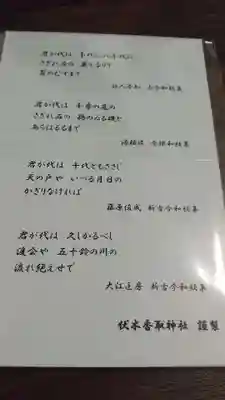 君が代は 千代に八千代に
さざれ石の 巌となりて
苔のむすまで
読人不知 古今和歌集
君が代は 千尋の底の
さざれ石の 鵜のゐる磯と
あらはるるまで
源頼綱 金槐和歌集
君が代は 千代ともささじ
天の戸や いづる月日の
かぎりなければ
藤原俊成 新古今和歌集
君が代は 久しかるべし
渡会や 五十鈴の川の
流れ絶えせで
大江匡房 新古今和歌集
伏木香取神社 謹製